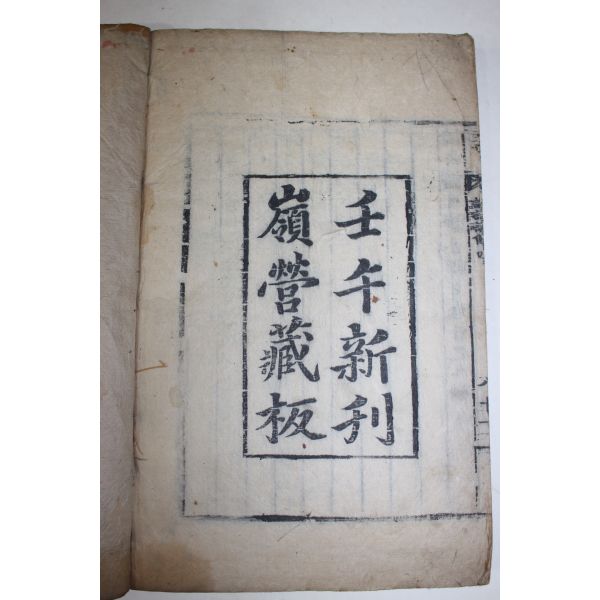 壬午新刋
嶺營藏板